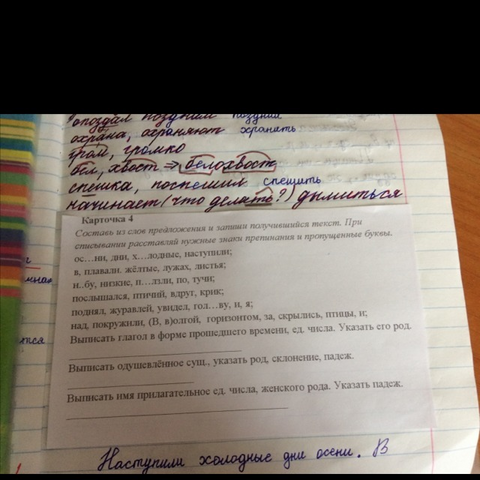 опоздал поздний поздний
охрана, охраняют хранить
гром, громко
бел, хвост ⇒ белохвост
спешка, поспешил спешить
начинает (что делать?) дымиться
Карточка 4
Составь из слов предложения и запиши получившийся текст. При
списывании расставляй нужные знаки препинания и пропущенные буквы.
ос…ни, дни, х…лодные, наступили;
в, плавали, жёлтые, лужах, листья;
н..бу, низкие, п…лзли, по, тучи;
послышался, птичий, вдруг, крик;
поднял, журавлей, увидел, гол…ву, и, я;
над, покружили, (В, в)олгой, горизонтом, за, скрылись, птицы, и;
Выписать глагол в форме прошедшего времени, ед. числа. Указать его род.
Выписать одушевлённое сущ., указать род, склонение, падеж.
Выписать имя прилагательное ед. числа, женского рода. Указать падеж.
Наступили холодные дни осени. В